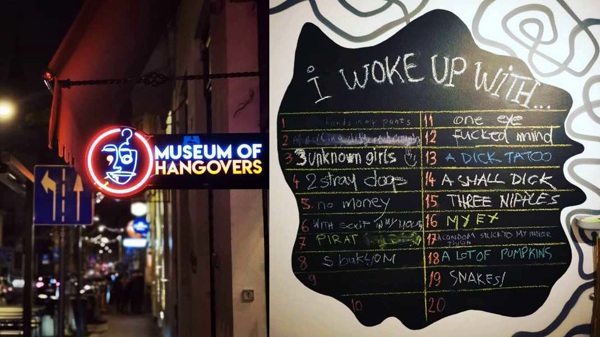 MUSEUM OF
HANGOVERS
i WOKE UP WiTH...
1
2
3 unknown girls
4 2 stray dogs
5. no money
6
7 PIRAT
8
9
10
11 one eye
12 fucked mind
13 A DICK TATOO
14 A SMALL DICK
15 THREE NIPPLES
16 MY EX
17
18 A LOT OF PUMPKINS
19 SNAKES!
20